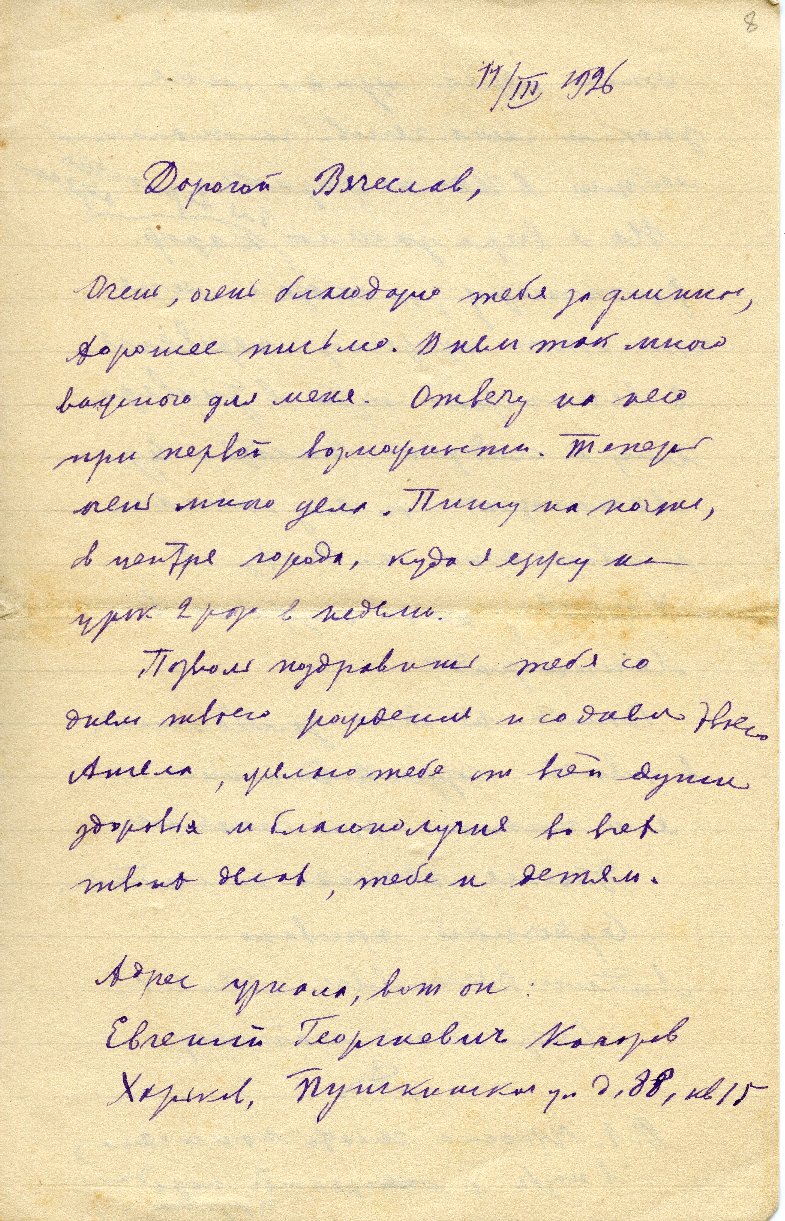 8
11/III 1926
Дорогой Вячеслав,
Очень, очень благодарю тебя за длинное,
хорошее письмо. В нем так много
важного для меня. Отвечу на него
при первой возможности. Теперь
очень много дела. Пишу на почте,
в центре города, куда я езжу на
урок 2 раза в неделю.
Позволь поздравить тебя со
днем твоего рождения и со днем твоего
Ангела, желаю тебе от всей души
здоровья и благополучия во всех
твоих делах, тебе и детям.
Адрес узнала, вот он:
Евгений Георгиевич
Харьков, Пушкинская ул д. 88, кв 15